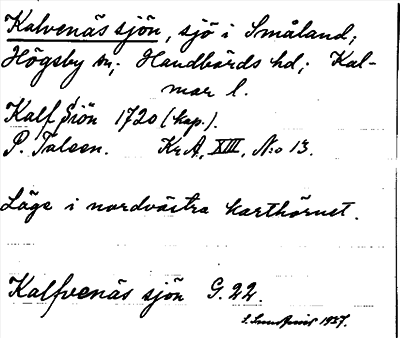 Kalvenäs sjön, sjö i Småland;
Högsby sn; Handbörds hd; Kal-
mar l.
Kalf Siön 1720 (kap.).
P. Talsen. Kr A, XIII, N:o 13.
Läge i nordvästra karthörnet.
Kalfvenäs sjön G. 22.
1937.